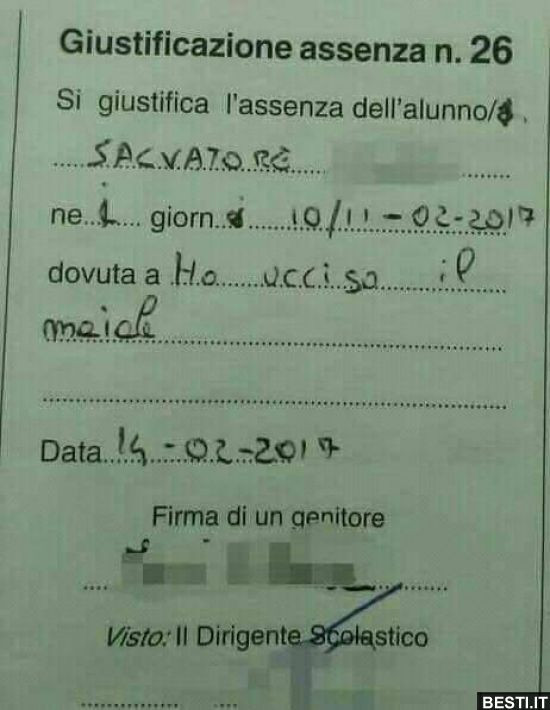 Giustificazione assenza n. 26
Si giustifica l'assenza dell'alunno/
SALVATORE
ne i giorn i 10/11-02-2017
dovuta a Ho ucciso il
maiale
Data 14-02-2017
Firma di un genitore
Visto: Il Dirigente Scolastico
BESTI.IT